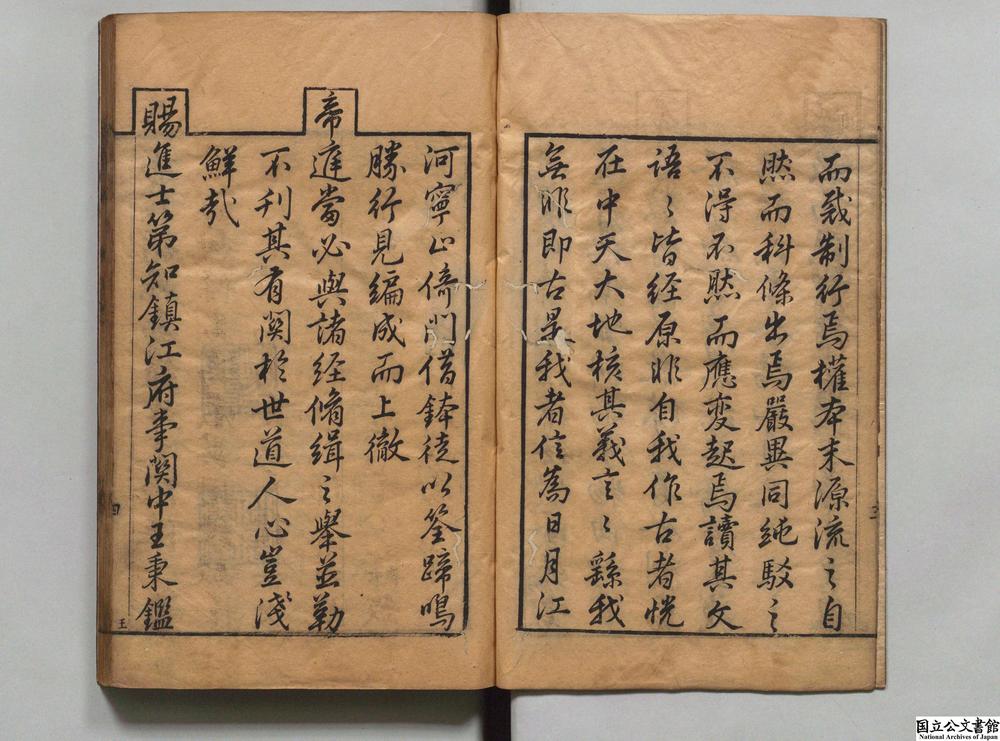 而裁制行焉權本末源流之自
然而科條出焉嚴異同純駁之
不得不然而應変起焉讀其文
語〻皆経原非自我作古者恍
在中天大地核其義言〻繇我
無非即古是我者信為日月江
河寧止倚門借鉢徒以筌蹄鳴
勝行見編成而上徹
帝庭當必與諸経脩緝之舉並勒
不刊其有関於世道人心豈淺
鮮哉
賜進士第知鎮江府事関中王秉鑑
三
四
王
国立公文書館
National Archives of Japan